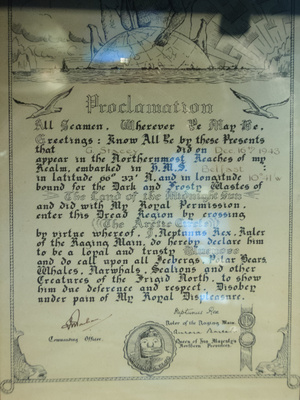 Proclamation
All Seamen, Wherever Ye May Be,
Greetings: Know All Ye by these Presents
that G. Stacey did on Dec. 1943
appear in the Northernmost Reaches of my
Realm, embarked in H.M.S. Belfast
in latitude 66° 32' N. and in longitude
bound for the Dark and Frosty Wastes of
The Land of the Midnight Sun
and did with My Royal Permission,
enter this Dread Region by crossing
The Arctic Circle
by virtue whereof, I, Neptunus Rex, Ruler
of the Raging Main, do hereby declare him
to be a loyal and trusty
and do call upon all Icebergs, Polar Bears,
Whales, Narwhals, Sealions and other
Creatures of the Frigid North, to show
him due deference and respect. Disobey
under pain of My Royal Displeasure.
Neptunus Rex
Ruler of the Raging Main
Aurora
Commanding Officer.
Queen of His Majesty's
Northern Provinces.